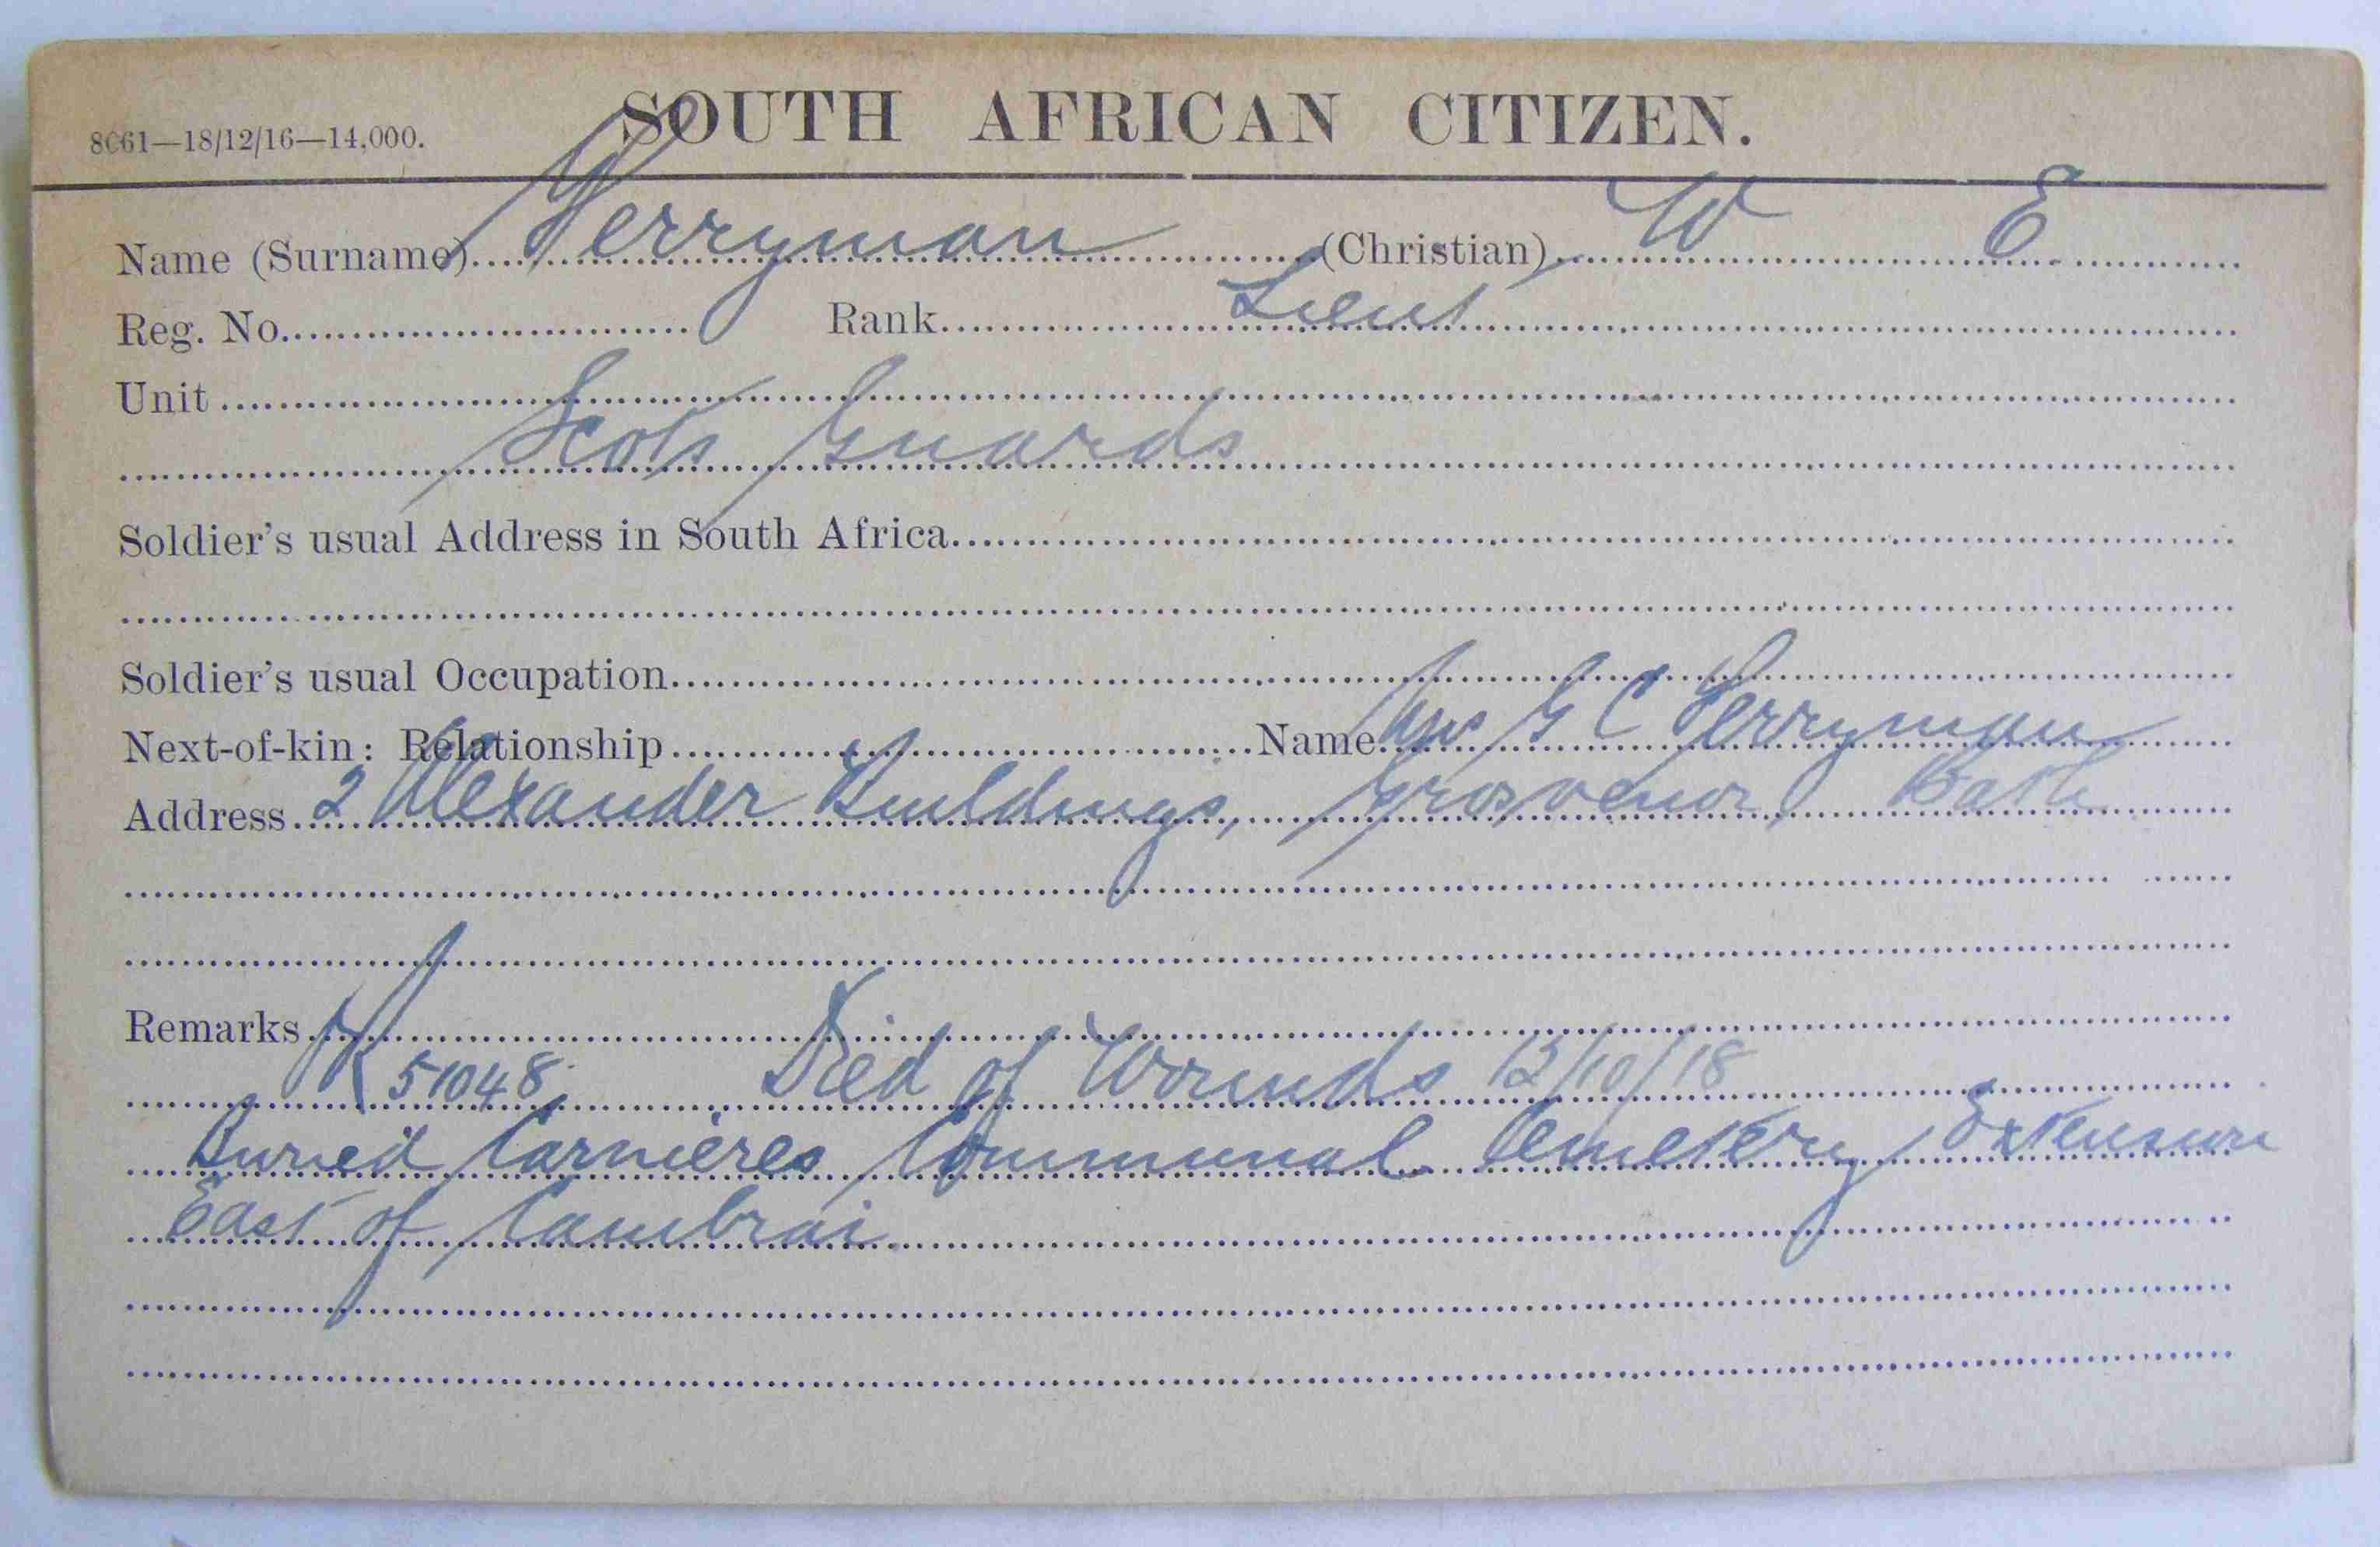 8C61—18/12/16—14,000. SOUTH AFRICAN CITIZEN.
Name (Surname) Perryman (Christian) W E
Reg. No. Rank Lieut
Unit
Scots Guards
Soldier's usual Address in South Africa
Soldier's usual Occupation
Next-of-kin: Relationship Name Mrs G C Perryman
Address 2 Alexander Buildings, Grosvenor, Bath
Remarks
51048 Died of Wounds 12/10/18
Buried Carnières Communal Cemetery Extension
East of Cambrai